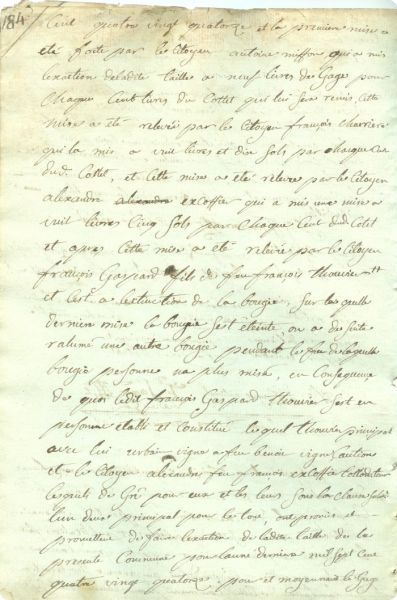 184
Cent quatre vingt quatorze et la premiere mise a
été faite par le Citoyen antoine miffon qui a mis
lexation de ladite taille a neuf livres de Gage pour
Chaque Cent livres du Cottet qui lui sera remis, Cette
mise a été relevée par le Citoyen françois Charriere
qui la mis a huit livres et dix sols par chaque Cent
dud. Cottet, et Cette mise a été relevée par le Citoyen
alexandre alexandre excoffier qui a mis une mise a
huit livres Cinq sols par Chaque Cent dud Cotet
et apres Cette mise a été relevée par le Citoyen
françois Gaspard fils de feu françois thouvier
et Cest a lextinction de la bougie, sur laquelle
derniere mise la bougie sest éteinte, on a de suite
ralumé une autre bougie pendant le feu de laquelle
bougie personne na plus misé, en Consequence
de quoi ledit françois Gaspard thouvier sest en
personne établi et Constitué lequel thouvier principal
avec lui vigne a feu benoit vigne
et le Citoyen alexandre feu françois excoffier
lesquels de Gré pour eux et les leurs sous la Clause
lun deux principal pour le tout, ont promis et
promettent de faire lexaction de ladite taille de la
presente Commune pour lannée derniere mil sept Cent
quatre vingt quatorze. pour et moyennant le Gage